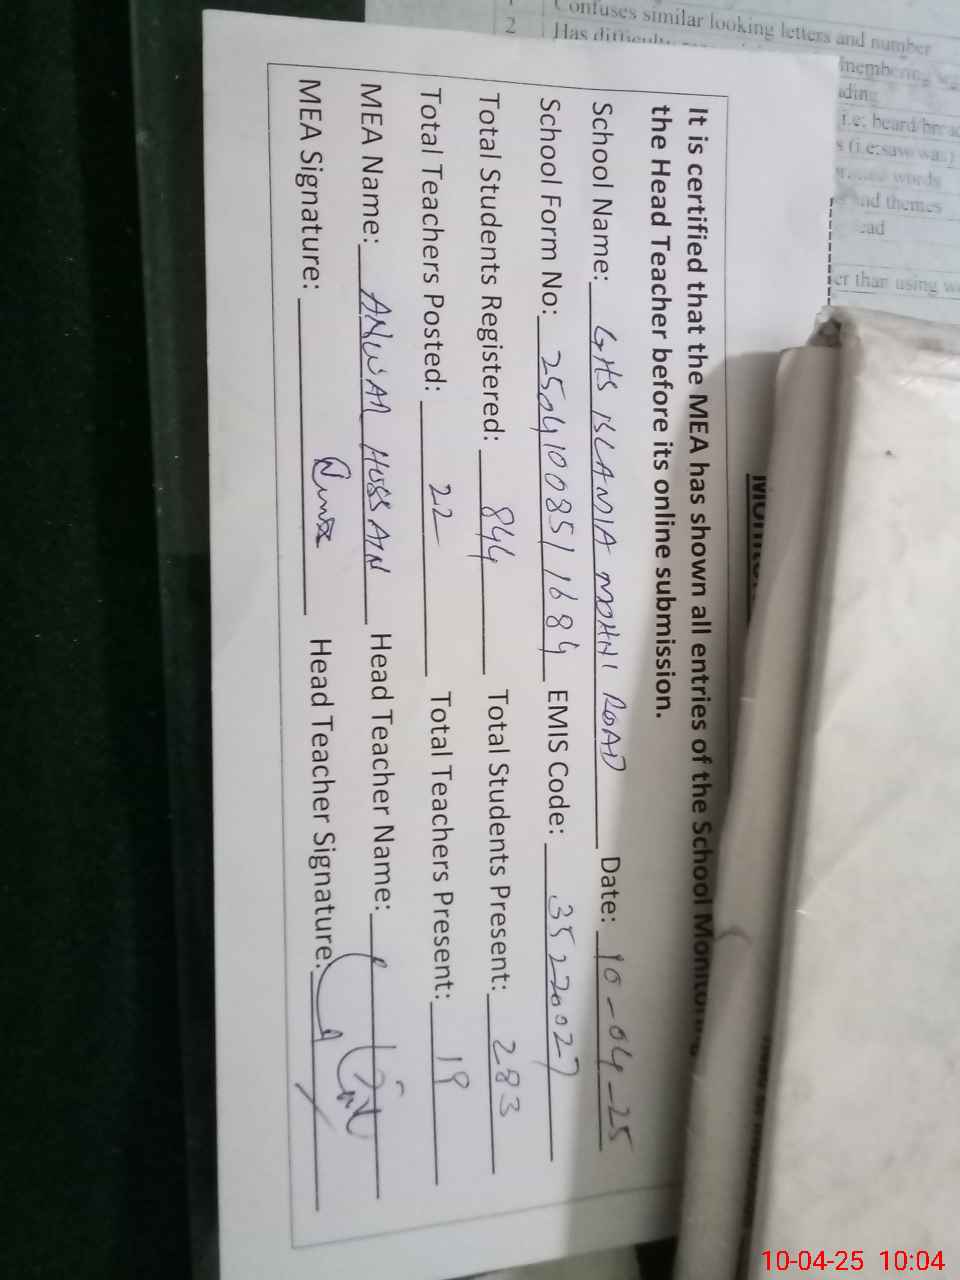 Confuses similar looking letters and number
2 Has difficulty
ading
i.e: beard/bread
s (i.e:saw was)
words
and themes
ead
er than using
It is certified that the MEA has shown all entries of the School Monitoring
the Head Teacher before its online submission.
School Name: GHS ISLAMIA MOHNI ROAD Date: 10-04-25
School Form No: 2504100851684 EMIS Code: 35270027
Total Students Registered: 844 Total Students Present: 283
Total Teachers Posted: 22 Total Teachers Present: 19
MEA Name: ANWAR HUSSAIN Head Teacher Name:
MEA Signature: Head Teacher Signature:
10-04-25 10:04